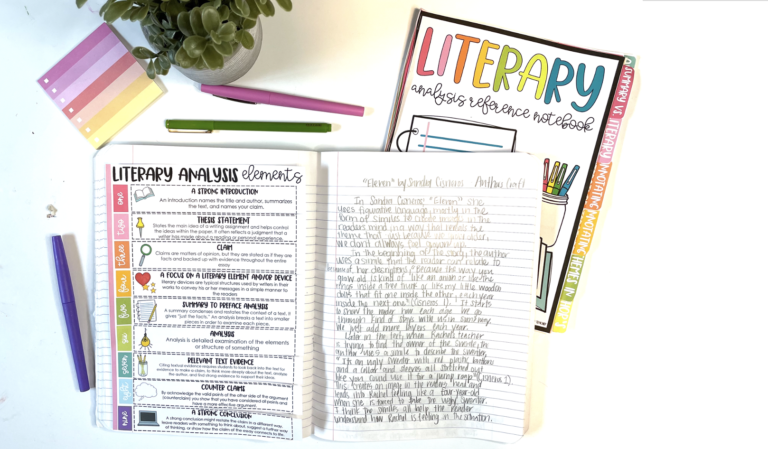 LITERARY
analysis reference notebook
SUMMARY VS LITERARY
ANNOTATING
THEMES IN
LITERARY ANALYSIS elements
one
A STRONG INTRODUCTION
An introduction names the title and author, summarizes
the text, and names your claim.
two
THESIS STATEMENT
States the main idea of a writing assignment and helps control
the ideas within the paper. It often reflects a judgment that a
writer has made about a reading or
three
CLAIM
Claims are matters of opinion, but they are stated as if they are
facts and backed up with evidence throughout the entire
essay
four
A FOCUS ON A LITERARY ELEMENT AND/OR DEVICE
literary devices are typical structures used by writers in their
works to convey his or her messages in a simple manner to
the readers
five
SUMMARY TO PREFACE ANALYSIS
A summary condenses and restates the content of a text, it
gives "just the facts." An analysis breaks a text into smaller
pieces in order to examine each piece.
six
ANALYSIS
Analysis is detailed examination of the elements
or structure of something
seven
RELEVANT TEXT EVIDENCE
Citing textual evidence requires students to look back into the text for
evidence to make a claim, to think more deeply about the text, analyze
the author, and find strong evidence to support their claim.
COUNTER CLAIMS
By acknowledge the valid points of the other side of the argument
(counterclaim) you show that you have considered all points and
have a more effective argument
nine
A STRONG CONCLUSION
A strong conclusion might restate the claim in a different way,
leave readers with something to think about, suggest a further way
of thinking, or show how the claim of the essay connects to life.
"Eleven" by Sandra Cisneros Author Craft
In Sandra Cisneros' "Eleven" she
uses figurative language, mostly in the
form of similes to create images in the
readers mind in a way that makes the
theme that just because we get older,
we don't always feel grown up.
In the beginning of the story, the author
uses a simile that the reader can relate to
her description, "because the way you
grow old is kind of like an onion or like the
rings inside a tree trunk or like my little wooden
dolls that fit one inside the other, each year
inside the next one" (Cisneros 1). It starts
to show the reader how each age we go
through kind of stays with us in some way.
We just add more layers each year.
Later in the text when Rachel's teacher
is trying to find the owner of the sweater, the
author uses a simile to describe the sweater,
"It's an ugly sweater with red plastic buttons
and a collar and sleeves all stretched out
like you could use it for a jump rope" (Cisneros 1).
This creates an image in the readers' head and
leads into Rachel feeling like a four year old
when she is forced to take the ugly sweater.
I think the similes all help the reader
understand how Rachel is feeling in the situation.